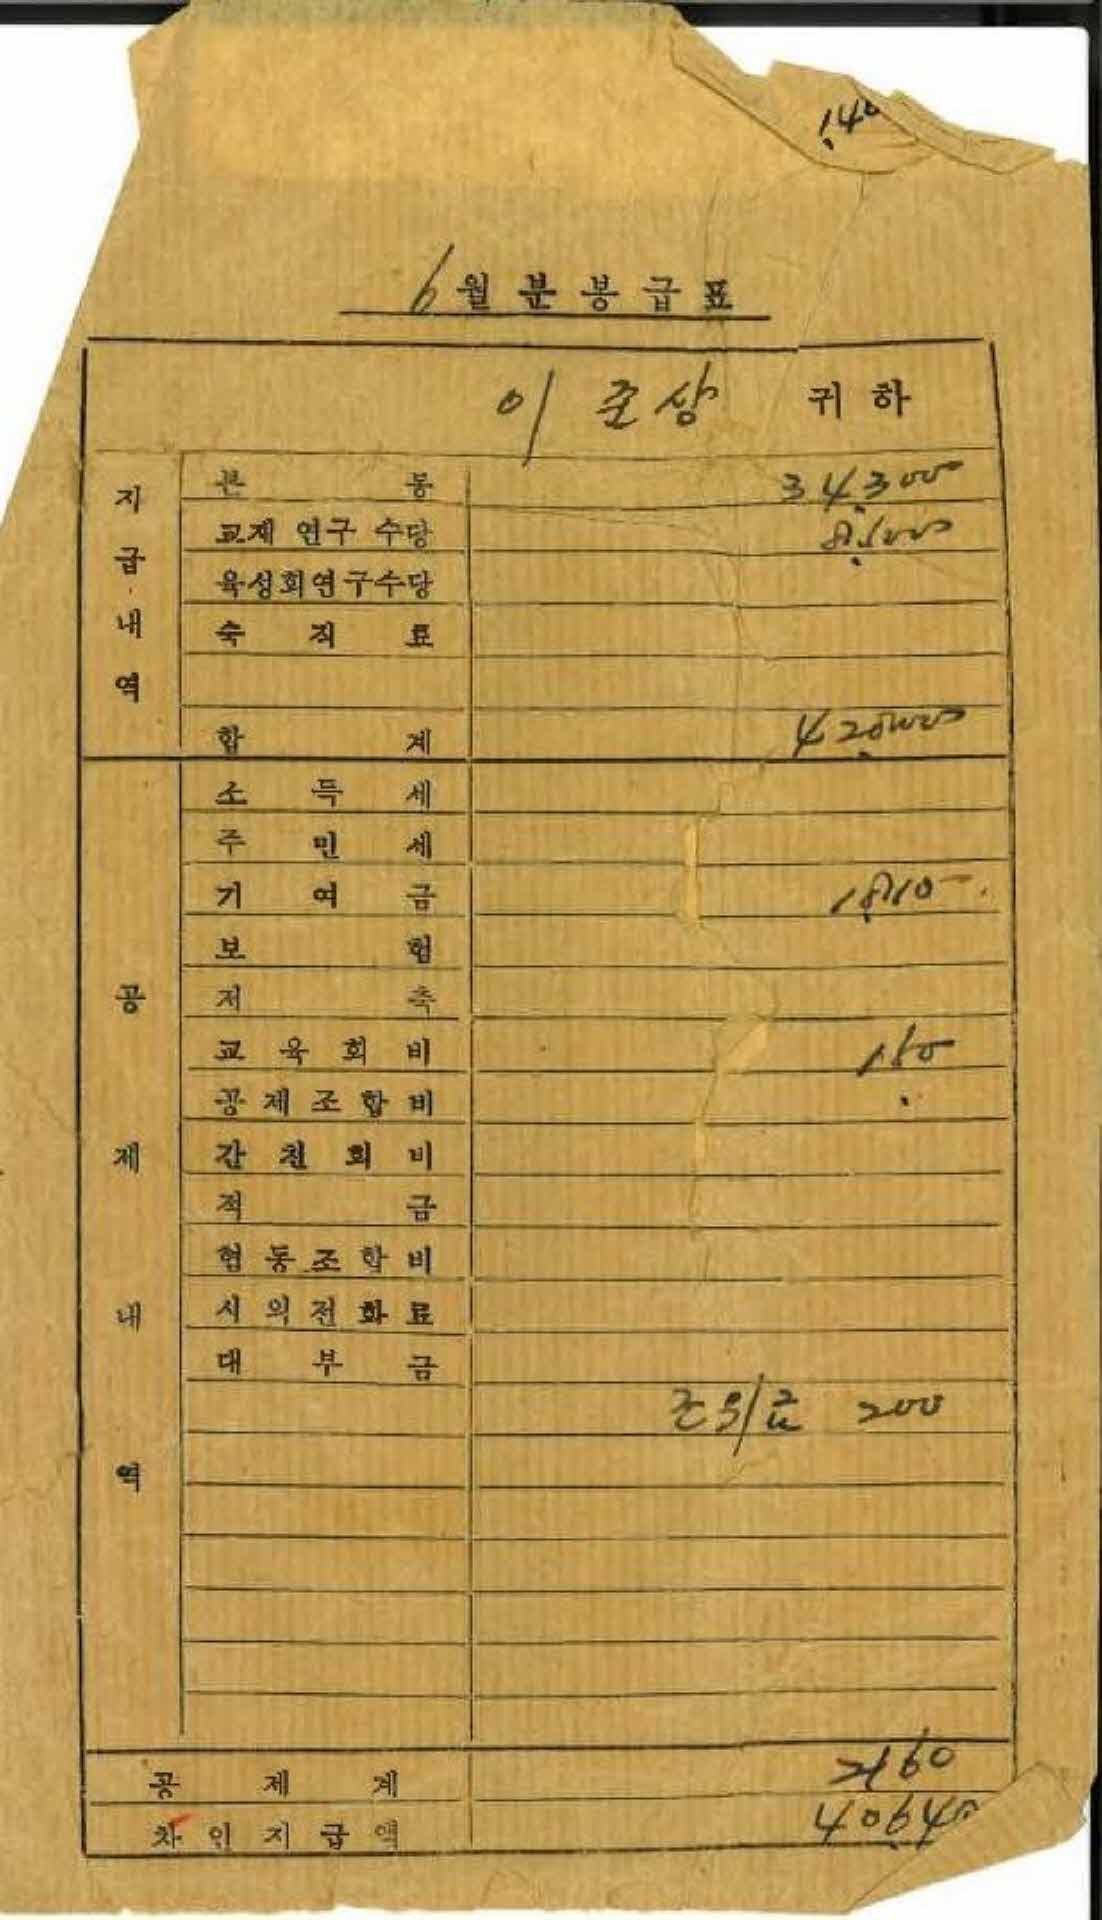 140
6월분봉급표
이준상 귀하
지급내역
본봉 34,300
교재연구수당 8,500
육성회연구수당
숙직료
합계 42,800
공제내역
소득세
주민세
기여금 1,810
보험
저축
교육회비 150
공제조합비
간친회비
적금
협동조합비
시외전화료
대부금
조의금 200
공제계 2160
차인지급액 40640